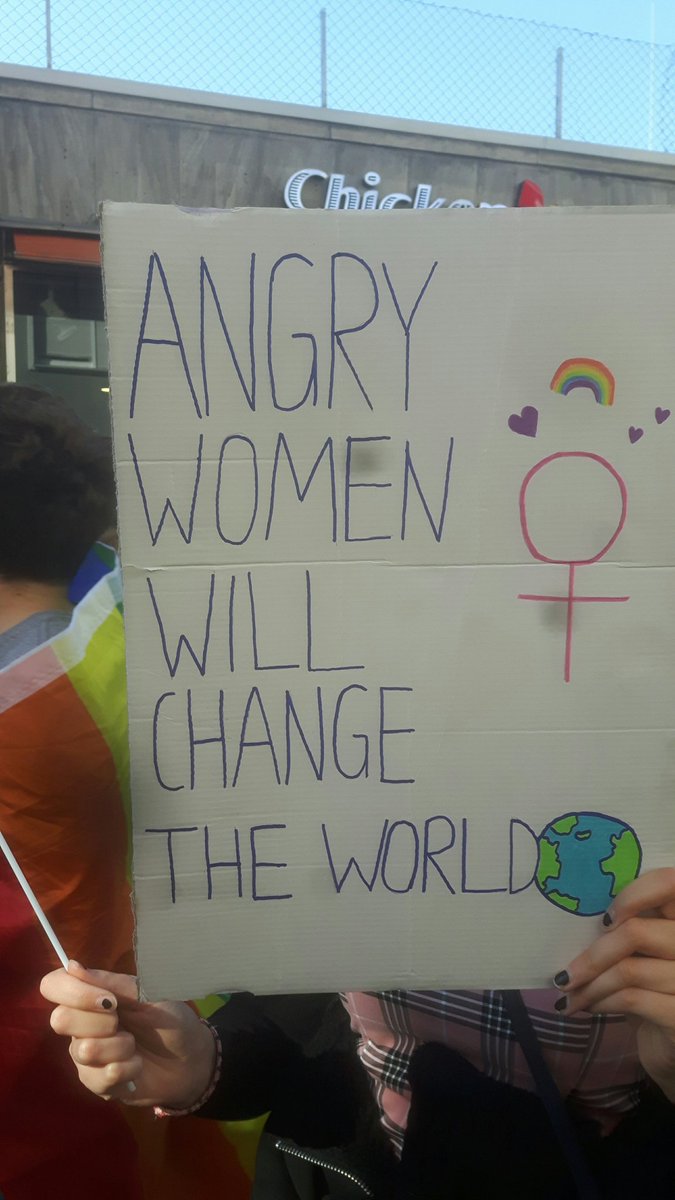 Chicken
ANGRY
WOMEN
WILL
CHANGE
THE WORLD